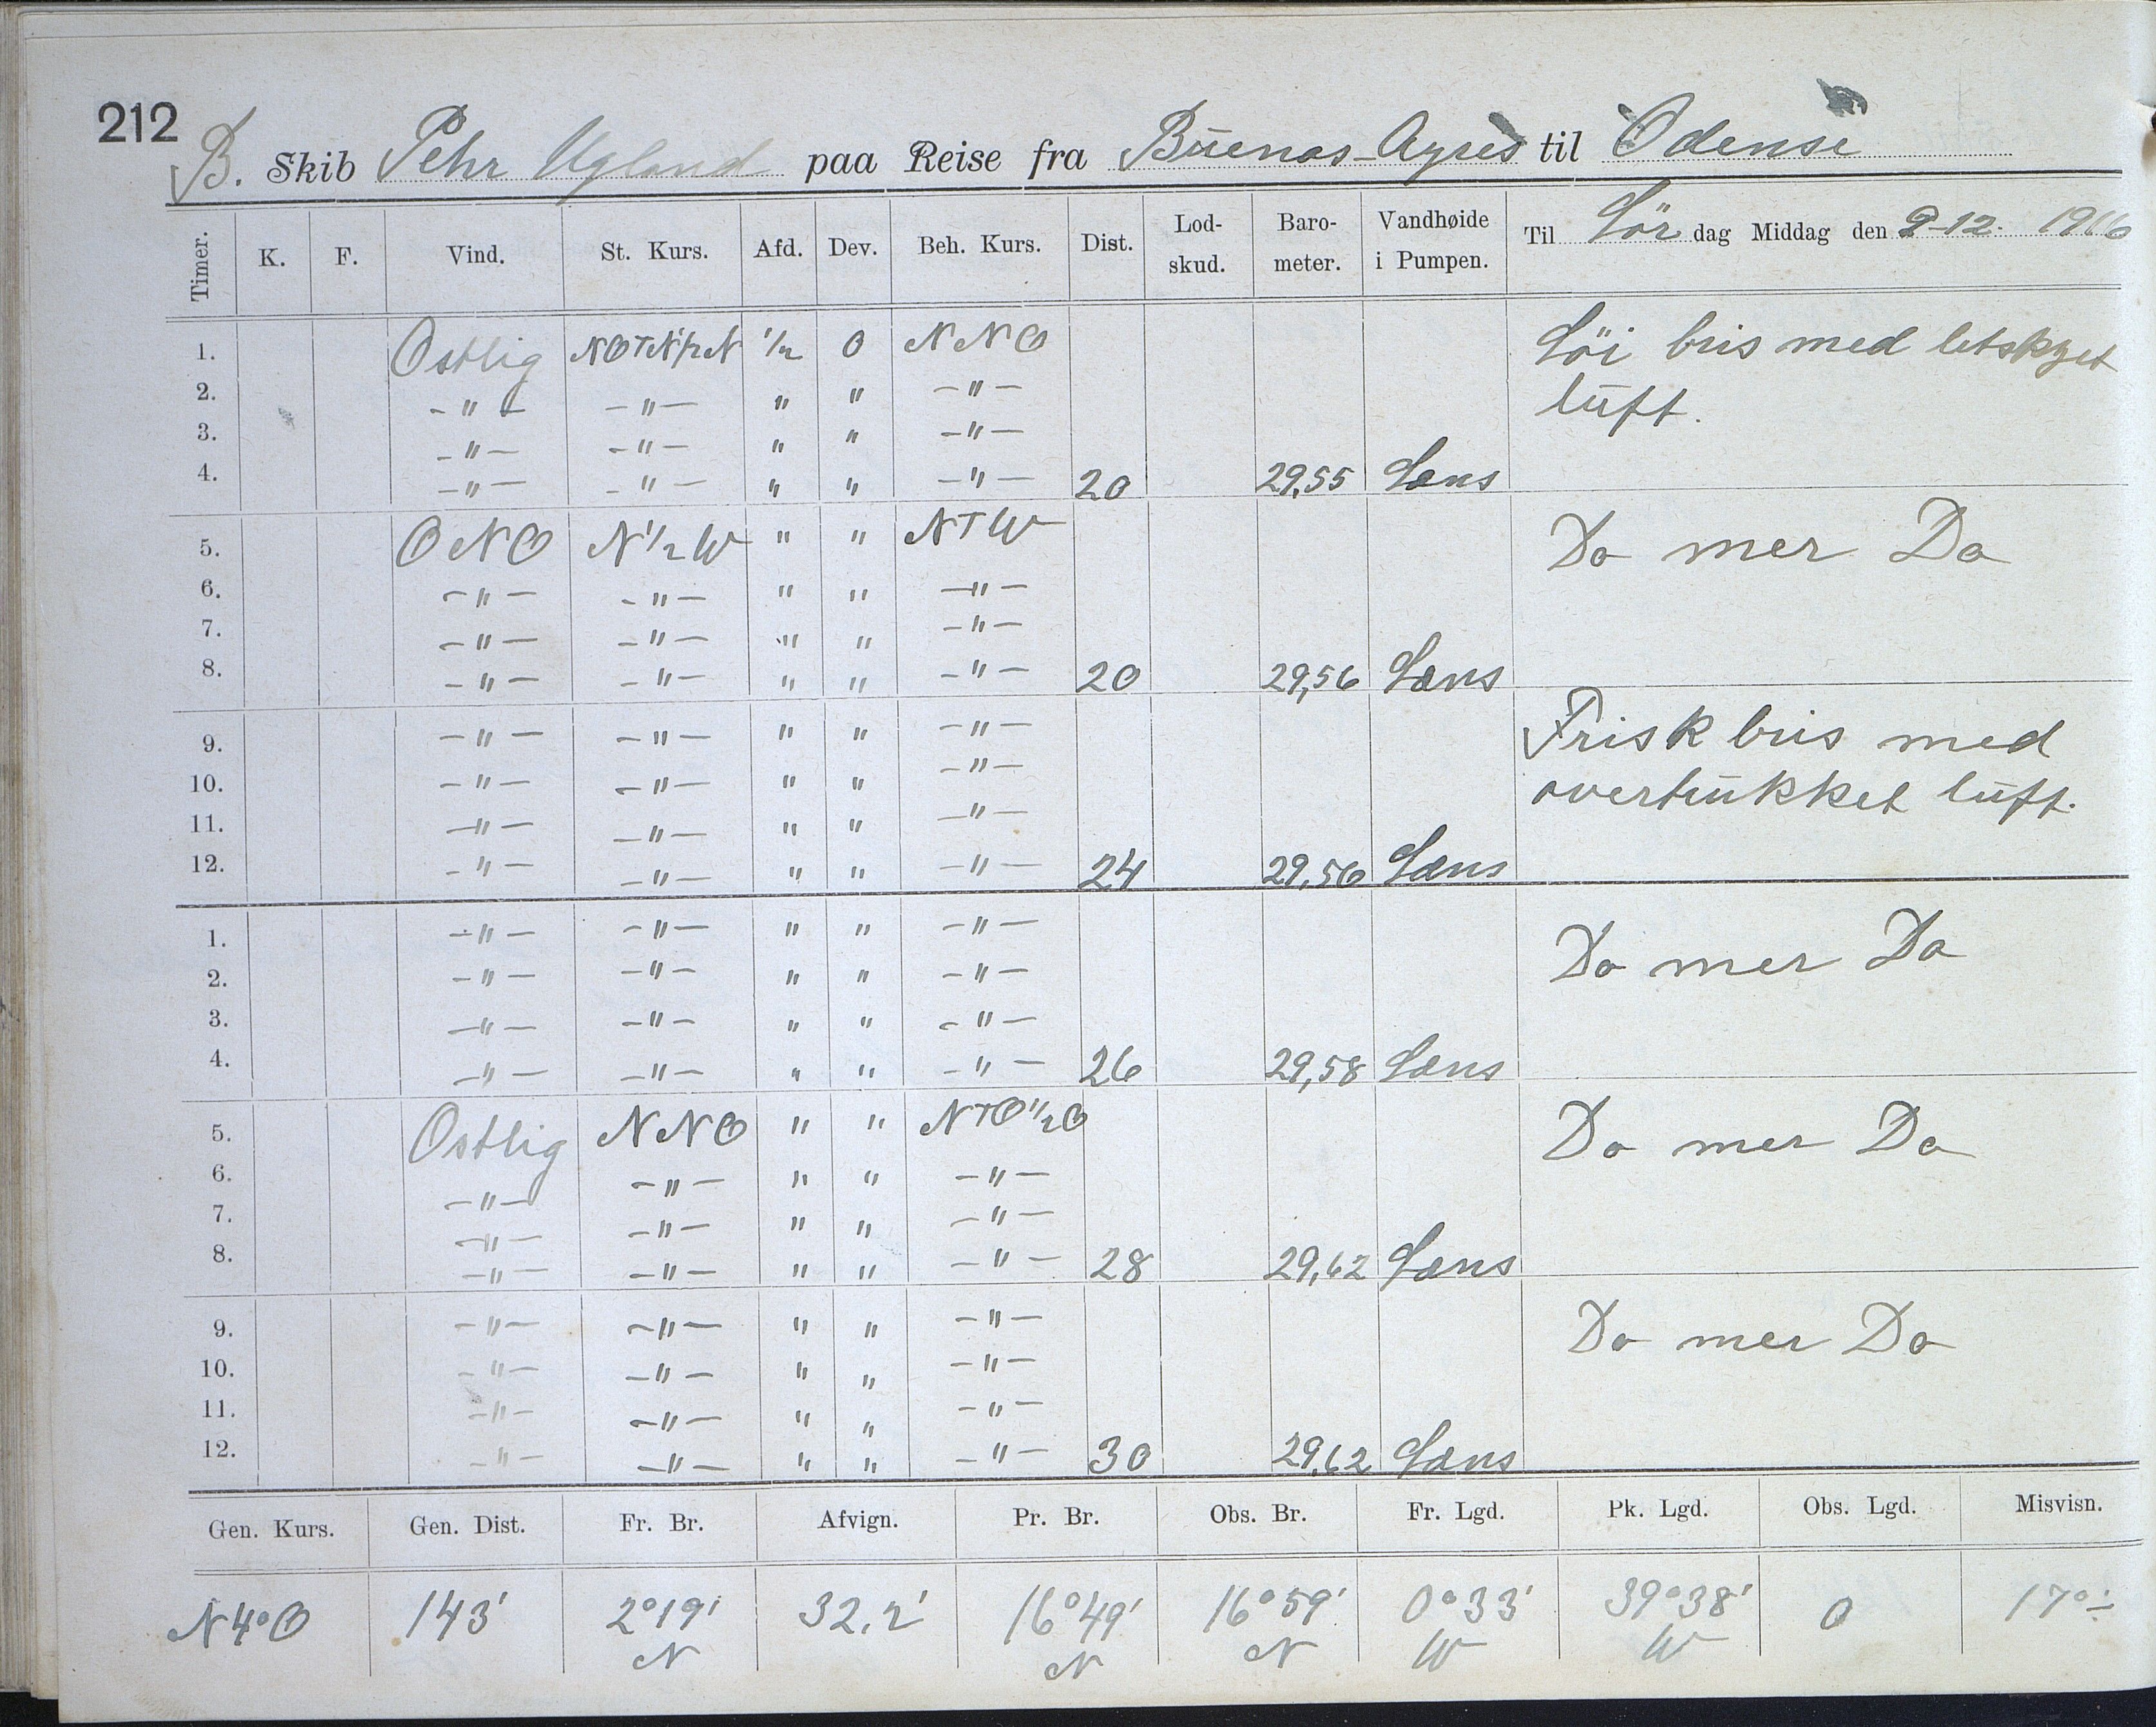 212
B. Skib Pehr Ugland paa Reise fra Buenos-Ayres til Odense
Timer. K. F. Vind. St. Kurs. Afd. Dev. Beh. Kurs. Dist. Lod-skud. Baro-meter. Vandhøide i Pumpen. Til Lör dag Middag den 9-12. 1916
1. Ostlig NOTN1/2N 1/2 0 NNO Löi bris med letskyet
2. -"- -"- " " -"- luft.
3. -"- -"- " " -"-
4. -"- -"- " " -"- 20 29,55 Læns
5. ONO N1/2W " " NTW Do mer Do
6. -"- -"- " " -"-
7. -"- -"- " " -"-
8. -"- -"- " " -"- 20 29,56 Læns
9. -"- -"- " " -"- Frisk bris med
10. -"- -"- " " -"- overtrukket luft.
11. -"- -"- " " -"-
12. -"- -"- " " -"- 24 29,56 Læns
1. -"- -"- " " -"- Do mer Do
2. -"- -"- " " -"-
3. -"- -"- " " -"-
4. -"- -"- " " -"- 26 29,58 Læns
5. Ostlig NNO " " NTO1/2O Do mer Do
6. -"- -"- " " -"-
7. -"- -"- " " -"-
8. -"- -"- " " -"- 28 29,62 Læns
9. -"- -"- " " -"- Do mer Do
10. -"- -"- " " -"-
11. -"- -"- " " -"-
12. -"- -"- " " -"- 30 29,62 Læns
Gen. Kurs. Gen. Dist. Fr. Br. Afvign. Pr. Br. Obs. Br. Fr. Lgd. Pk. Lgd. Obs. Lgd. Misvisn.
N4°O 143' 2°19' 32,2' 16°49' 16°59' 0°33' 39°38' 0 17°÷
N N N W W